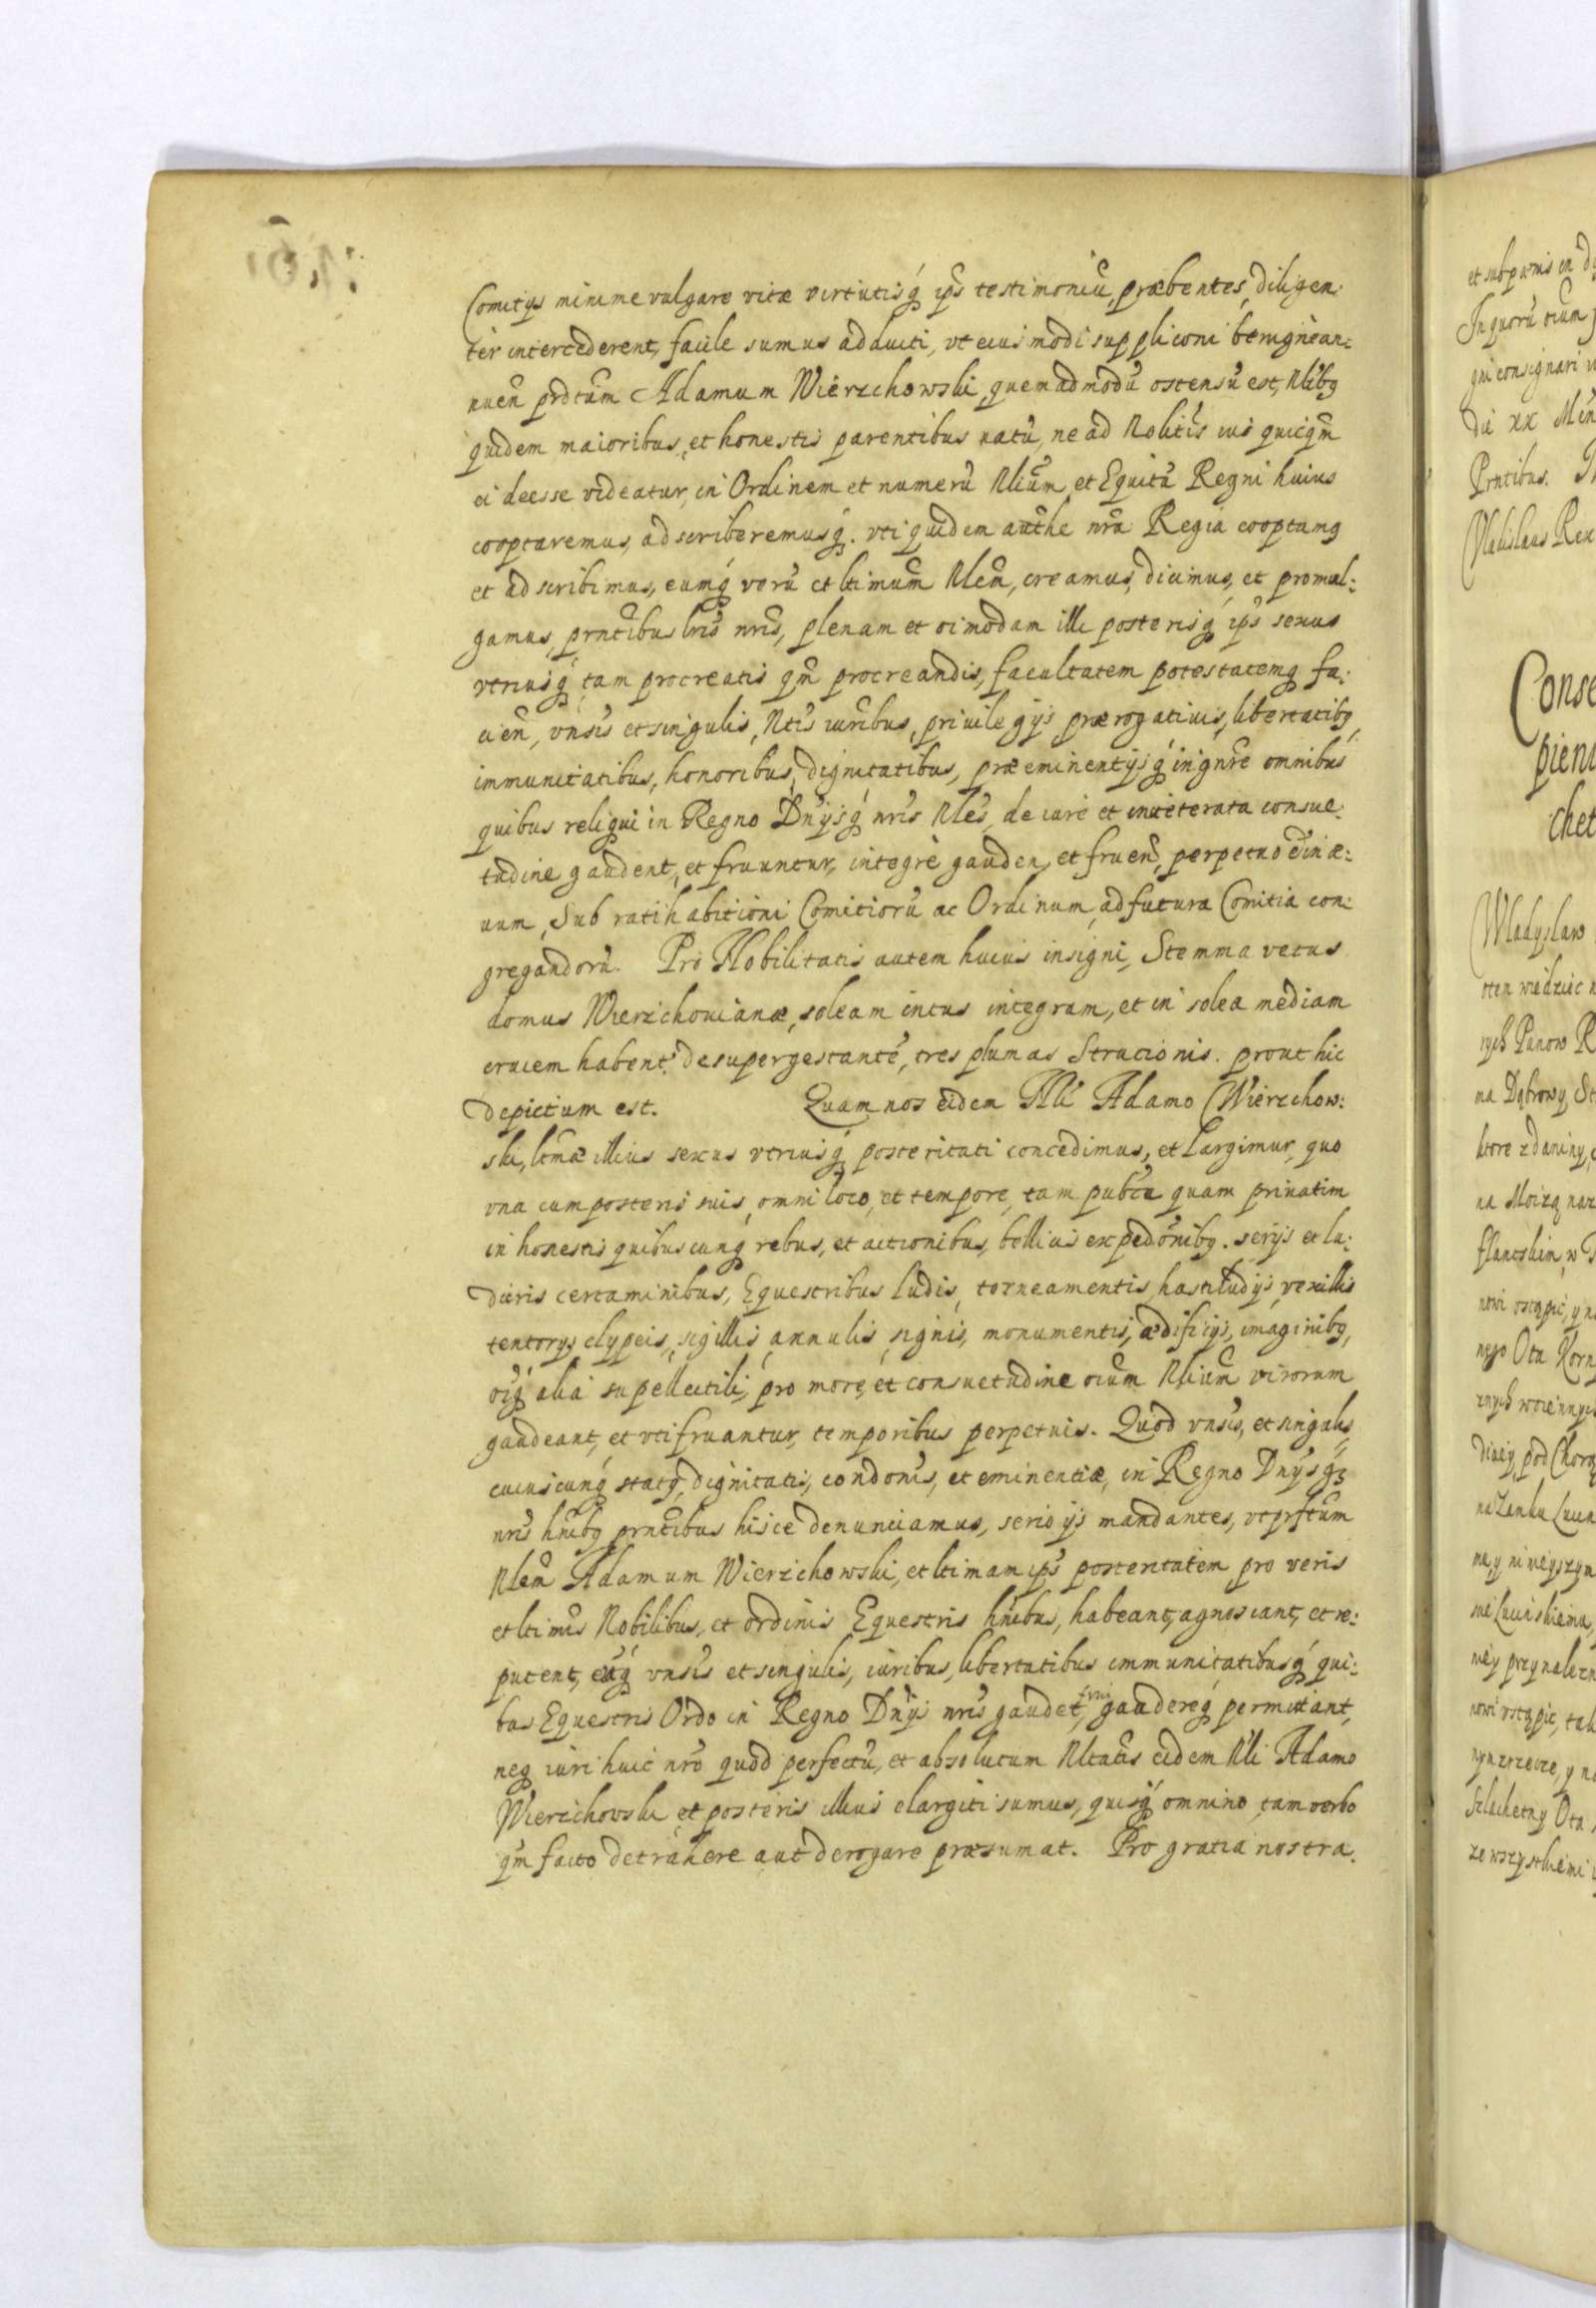 Comitijs minime vulgare vitæ virtutisq́ ips testimoniũ præbentes, diligen:
ter intercederent, facile sumus adducti, vt eiusmodi suppliconi benignè an:
nueñ prdctũm Adamum Wierzchowski quemadmodũ ostensũ est, Nlibq
quidem maioribus, et honestis parentibus natũ, ne ad Nolitis ius quicqm̃
ei deesse videatur, in Ordinem et numerũ Nliũm et Equitũ Regni huius
cooptaremus, adscriberemusq́. vti quidem authe nrã Regia cooptamq
et adscribimus, eumq́ verũ et ltimũm Nlem̃, creamus, dicimus, et promul:
gamus, prntibus lris nris, plenam et oimodam illi posterisq́ ips sexus
vtriusq́ tam procreatis qm̃ procreandis, facultatem potestatemq fa:
cieñ, vnsis et singulis, Ntis iuribus, priuilegijs prærogatiuis, libertatibq,
immunitatibus, honoribus, dignitatibus, præeminentijsq́ in gnre omnibus
quibus reliqui in Regno Dnijsq́ nris Nles, de iure et inueterata consue:
tudine gaudent, et fruuntur, integrè gauden, et frueñ, perpetuo ein æ:
uum, Sub ratihabitioni Comitiorũ ac Ordinum, ad futura Comitia con:
gregandorũ. Pro Nobilitatis autem huius insigni, Stemma vetus
domus Wierzchouianæ, soleam intus integram, et in solea mediam
crucem habent. desuper gestantẽ, tres plumas Strucionis. prout hic
depictum est. Quam nos eidem Nli Adamo Wierzchow:
ski, ltmæ illius sexus vtriusq́ posteritati concedimus, et largimur, quo
vna cum posteris suis, omni loco, et tempore, tam pubce quam priuatim
in honestis quibuscunq́ rebus, et actionibus, bellicis expedonibq. serijs et lu:
dicris certaminibus, Equestribus ludis, torneamentis, hastiludijs, vexillis
tentorijs clypeis, sigillis, annulis, signis, monumentis, ædificijs, imaginibq,
oiq́ alia supellectili, pro more, et consuetudine oium Nlium virorum
gaudeant, et vtifruantur, temporibus perpetuis. Quod vnsis, et singulis,
cuiuscunq́ statq, dignitatis, condonis, et eminentiæ, in Regno Dnijsq́
nris hnibq prntibus hisce denunciamus, serio ijs mandantes, vt prftum
Nlem̃ Adamum Wierzchowski, et ltimam ips posteritatem pro veris
et ltimis Nobilibus, et ordinis Equestris hnibus, habeant, agnoscant, et re:
putent, eosq́ vnsis et singulis, iuribus, libertatibus immunitatibusq́ qui:
bus Equestris Ordo in Regno Dnijs nris gaudet, frui gaudereq́ permittant,
neq iuri huic nro quod perfectũ, et absolutum Nltatis eidem Nli Adamo
Wierzchowski et posteris illius elargiti sumus, quisq́ omnino tam verbo
qm̃ facto detrahere aut derogare præsumat. Pro gratia nostra.
et sub pœnis in
In quorũ oium
gni consignari
die xx
Prntibus.
Vladislaus Rex
Conse
pieni
chet
Wladyslaw
rych Panow
na Dąbrowy
ktore z daniny